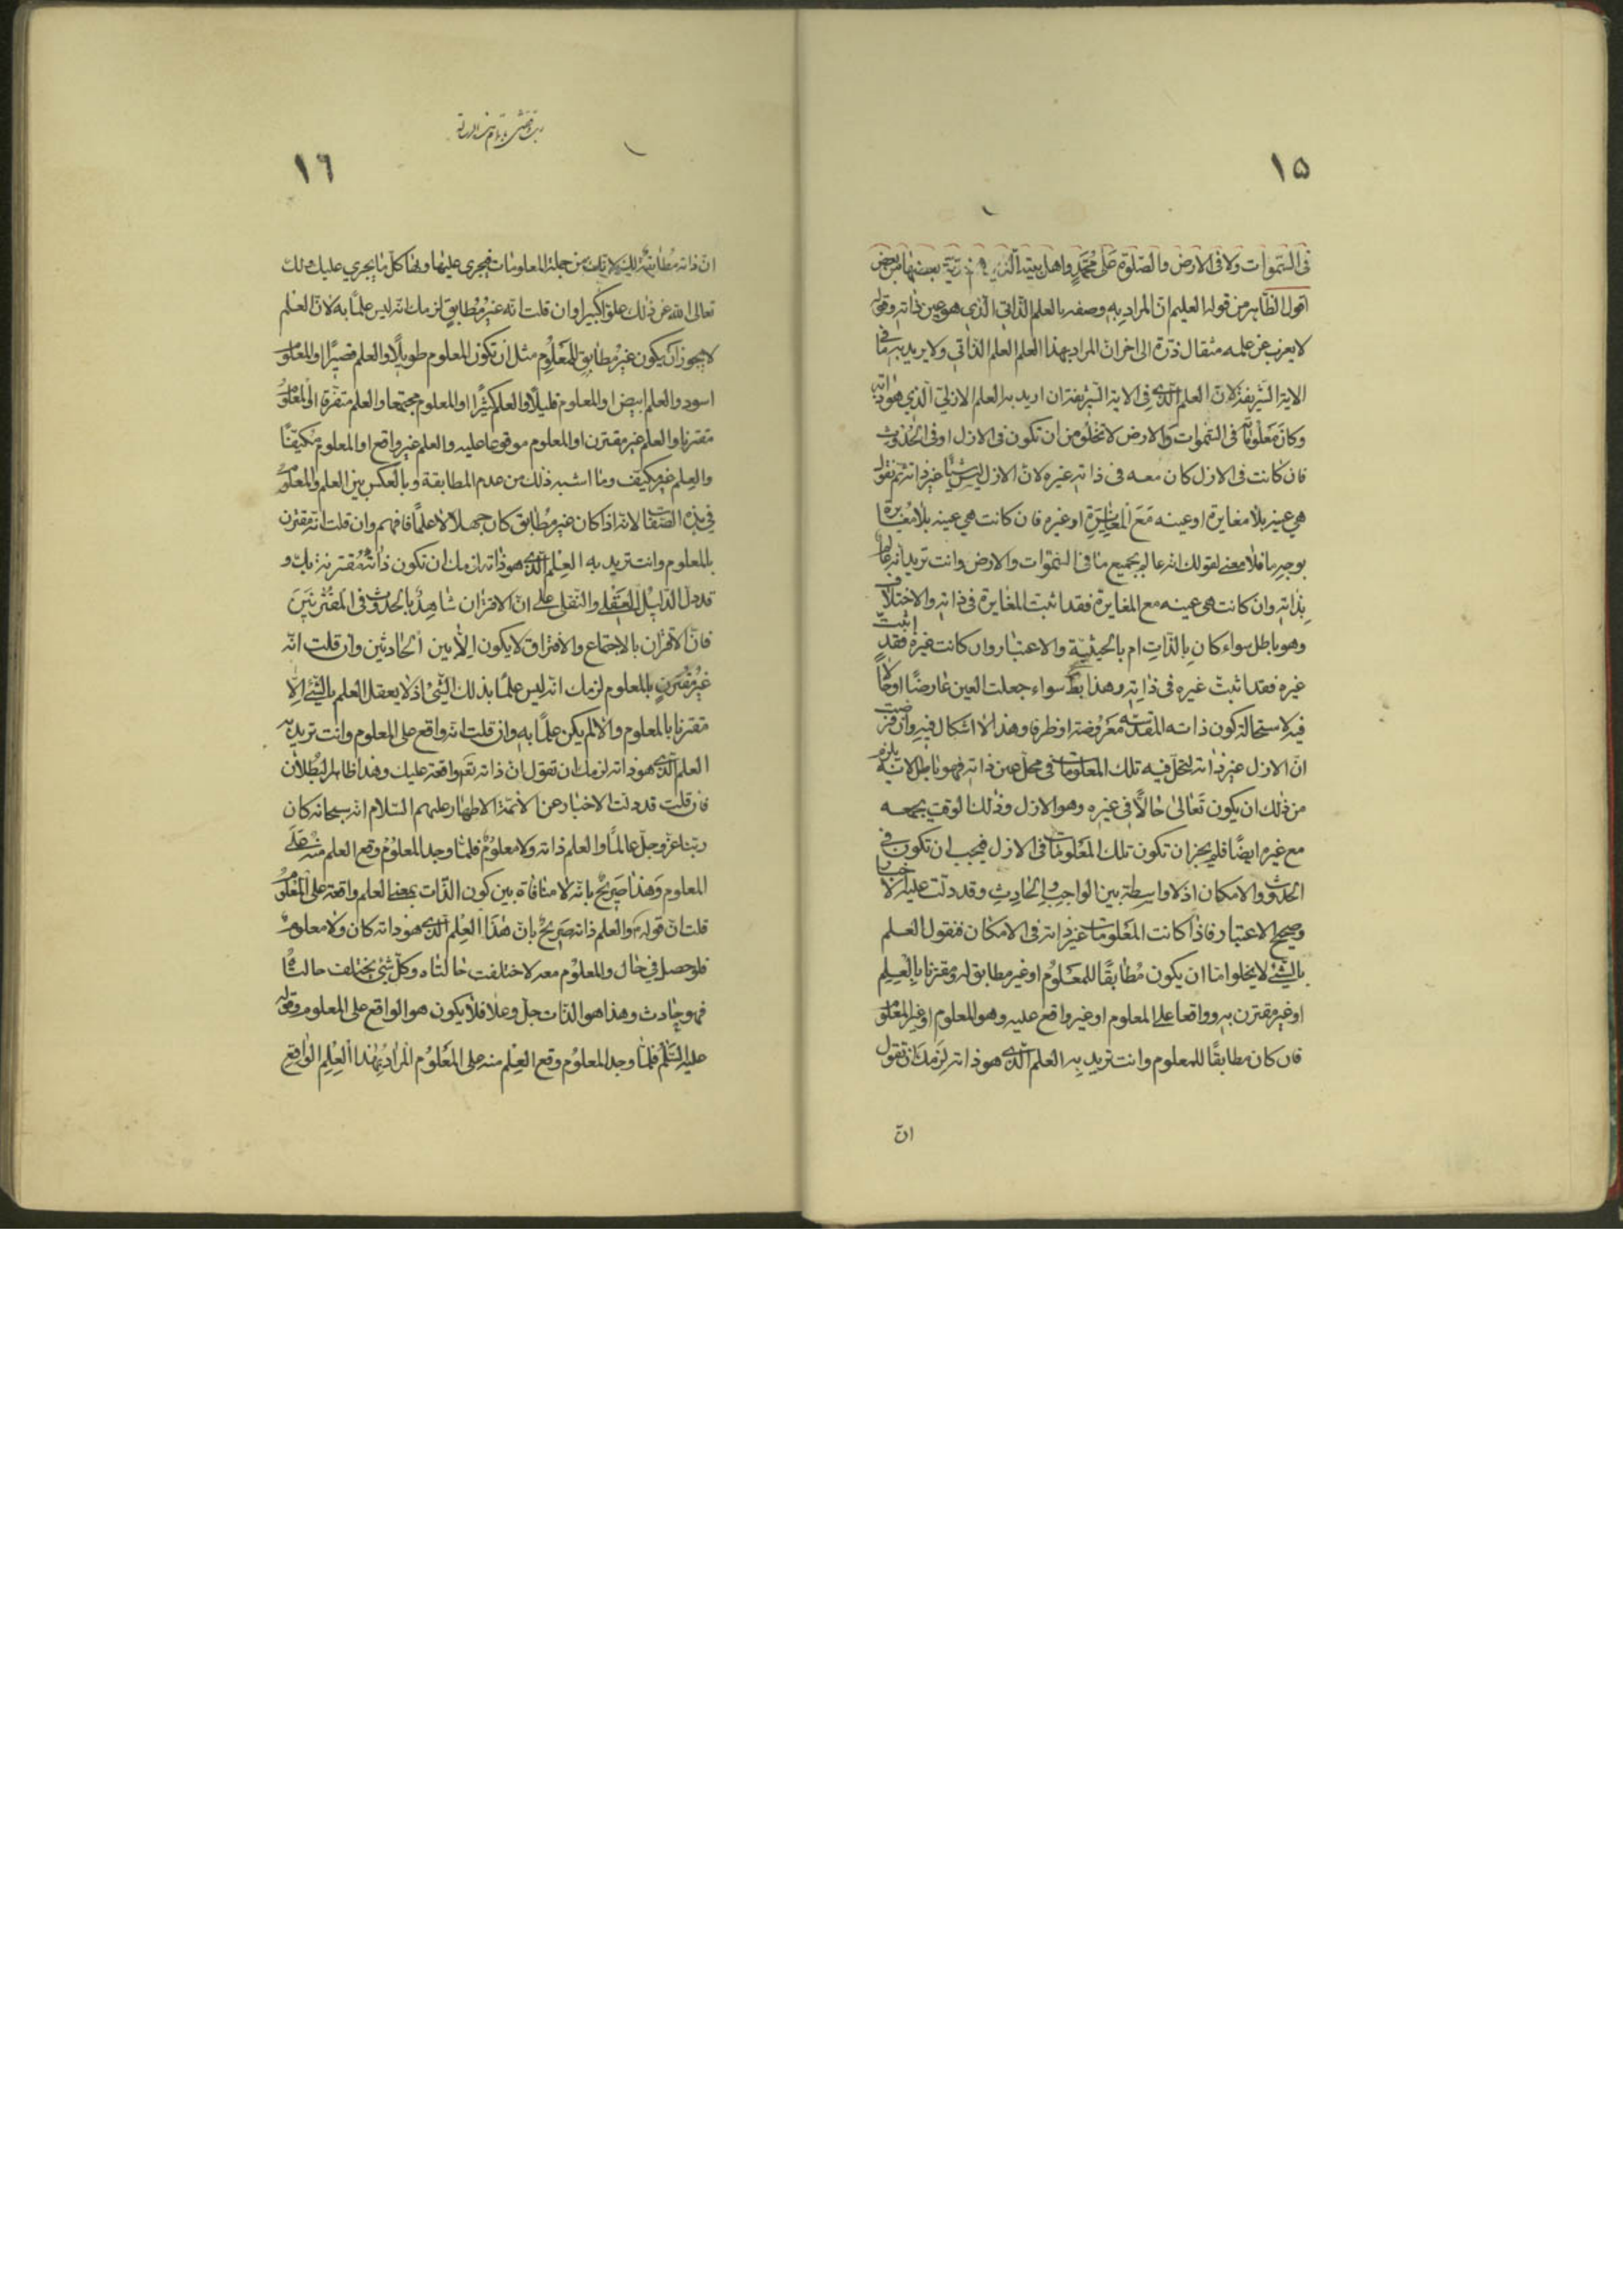 ١٥
فى السّموات ولا فى الارض والصّلوة على محمّدٍ واهل بيته الّذين هم ذريّة بعضها من بعض
اقول الظّاهر من قوله العليم انّ المراد به وصفه بالعلم الذّاتى الّذي هو عين ذاته وقوله
لا يعزب عن علمه مثقال ذرّة الى اخر انّ المراد بهذا العلم العلم الذّاتي ولا يريد به ما فى
الاية الشّريفة لانّ العلم الّذى فى الاية الشّريفة ان اريد به العلم الازلي الّذي هو ذاته
وكان معلومًا فى السّموات والارض لا تخلو من ان تكون فى الازل او فى الحدوث
فان كانت فى الازل كان معه فى ذاته غيره لانّ الازل ليس شيئًا غير ذاته ثم نقول
هي عينه بلا مغايرة او عينه مع المغايرة او غيره فان كانت هي عينه بلا مغايرة
بوجهٍ ما فلا معنى لقولك انه عالم بجميع ما فى السّموات والارض وانت تريد انه عالم
بذاته وان كانت هى عينه مع المغايرة فقد اثبت المغايرة فى ذاته والاختلاف
وهو باطل سواء كان بالذّاتِ ام بالحيثيّة والاعتبار وان كانت غيره فقد اثبتّ
غيره فقد اثبتّ غيره فى ذاته وهذا بط سواء جعلت العين عارضًا او حالًّا
فيه لاستحالة كون ذاته المقدّسة معروضة او ظرفا وهذا لا اشكال فيه وان فرضت
انّ الازل غير ذاته لتحلّ فيه تلك المعلومات فى محلّ عين ذاته فهو باطل لانّه يلزم
من ذلك ان يكون تعالى حالًّا فى غيره وهو الازل وذلك الوقت يجمعه
مع غيره ايضًا فلم يجز ان تكون تلك المعلومات فى الازل فيجب ان تكون فى
الحدوث والامكان اذ لا واسطة بين الواجب والحادث وقد دلّت عليه الاخبار
وصحيح الاعتبار فاذا كانت المعلومات غير ذاته فى الامكان فنقول العلم
بالشّئ لا يخلو امّا ان يكون مُطابقًا للمعلوم او غير مطابق له ومقترنا بالعلم
او غير مقترن به وواقعا على المعلوم او غير واقع عليه وهو المعلوم او غير المعلوم
فان كان مطابقًا للمعلوم وانت تريد به العلم الّذى هو ذاته لزمك ان تقول
انّ
١٦
انّ ذاته مُطابقة لك لانّك من جملة المعلومات فيجري عليها وهنا كلّ ما يجري عليك ذلك
تعالى الله عن ذلك علوّا كبيرا وان قلت انّه غير مُطابق لزمك انّه ليس علمًا به لانّ العلم
لا يجوز ان يكون غير مطابق للمعلوم مثل ان تكون المعلوم طويلًا والعلم قصيرًا او المعلوم
اسود والعلم ابيض او المعلوم قليلًا والعلم كثيرًا او المعلوم مجتمعا والعلم متفرقا او المعلوم
مقترنا والعلم غير مقترن او المعلوم موقوعا عليه والعلم غير واقع او المعلوم مكيّفًا
والعلم غير مكيّف وما اشبه ذلك من عدم المطابقة وبالعكس بين العلم والمعلوم
في هذه الصّفات لانه اذا كان غير مُطابق كان جهلًا لا علمًا فافهم وان قلت انّه مقترن
بالمعلوم وانت تريد به العلم الّذى هو ذاته لزمك ان تكون ذاته مقترنة بك و
قد دلّ الدّليل العقلي والنّقلي على انّ الاقتران شاهدٌ بالحدوث فى المقترنَين
فانّ الاقتران بالاجتماع والافتراق لا يكون الّا بين الحادثين وان قلت انّه
غير مقترنٍ بالمعلوم لزمك انّه ليس علمًا بذلك الشّئ اذ لا يعقل العلم بالشّئ الّا
مقترنا بالمعلوم والّا لم يكن علمًا به وان قلت انّه واقع على المعلوم وانت تريد به
العلم الّذى هو ذاته لزمك ان تقول انّ ذاته تعم واقعة عليك وهذا ظاهر البُطلان
فان قلت قد دلّت الاخبار عن الائمّة الاطهار عليهم السّلام انّه سبحانه كان
ربّنا عزّ وجلّ عالمًا والعلم ذاته ولا معلوم فلمّا وجد المعلوم وقع العلم منه على
المعلوم وهذا صريحٌ بانّه لا منافاة بين كون الذّات بمعنى العلم واقعة على المعلوم
قلت انّ قوله والعلم ذاته صريحٌ بانّ هذا العلم الّذى هو ذاته كان ولا معلوم
فلو حصل في حال والمعلوم معه لاختلفت حالتاه وكلّ شئ يختلف حالتاه
فهو حادث وهذا هو الذّات جلّ وعلا فلا يكون هو الواقع على المعلوم وقوله
عليه السّلم فلمّا وجد المعلوم وقع العلم منه على المعلوم المراد بهذا العلم الواقع